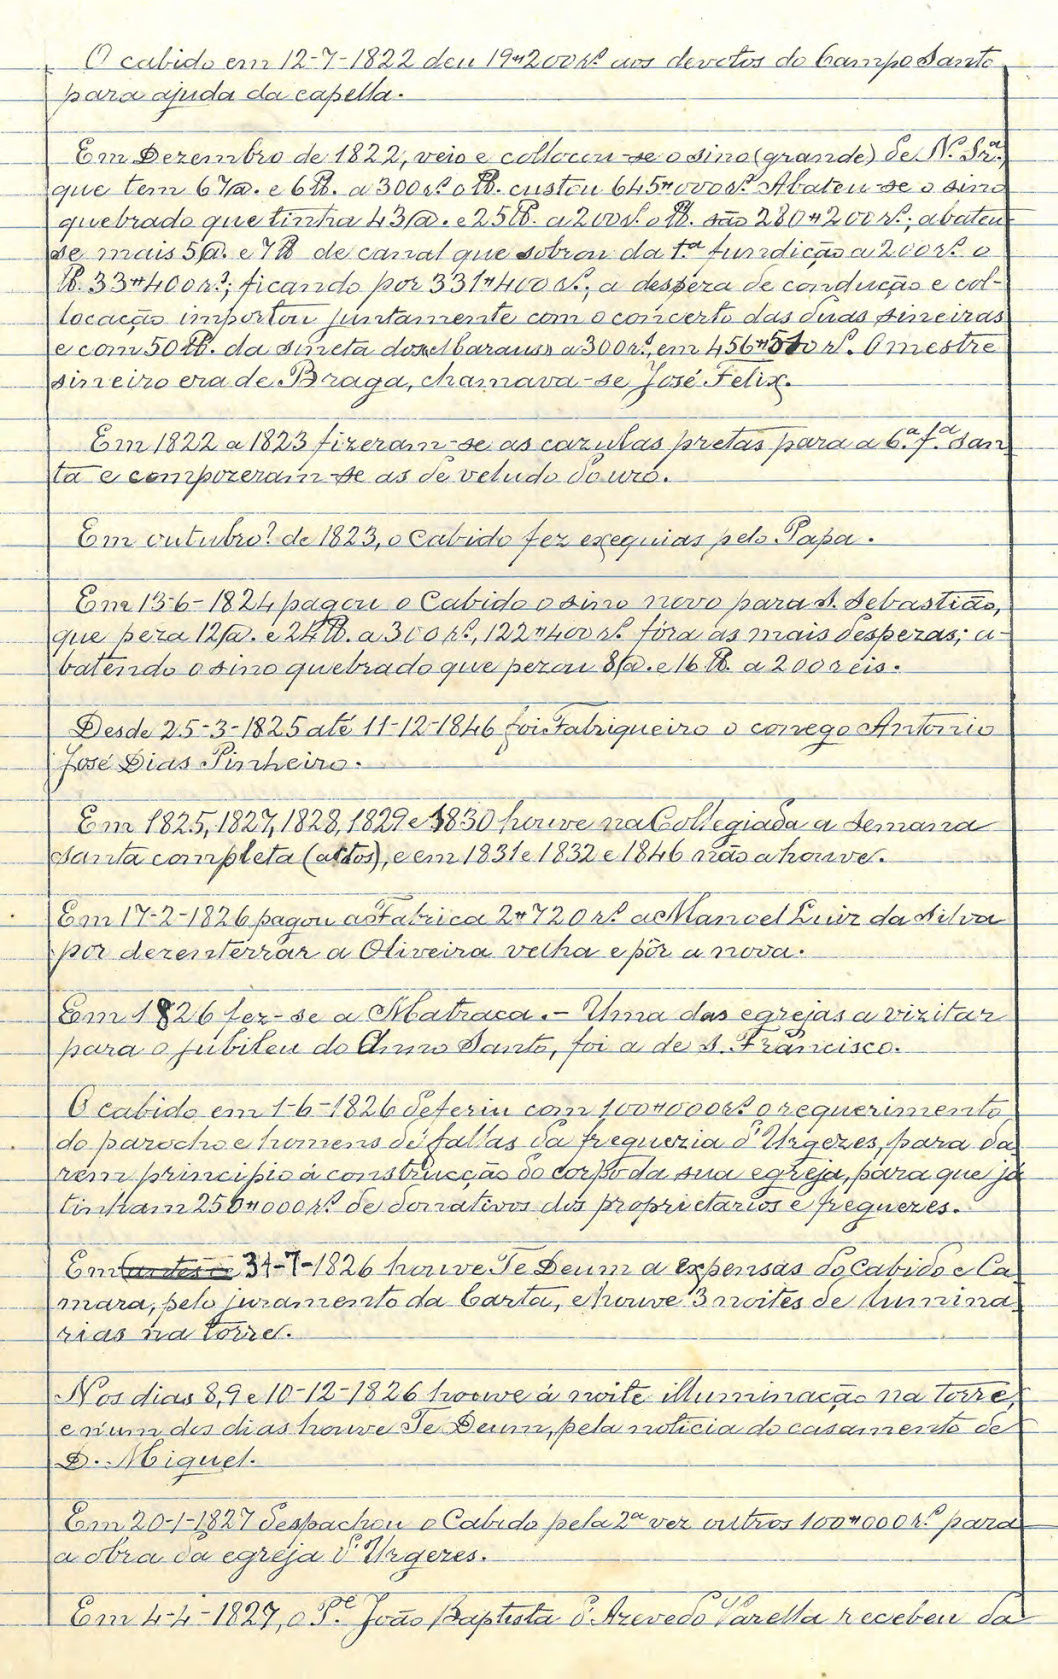 O cabido em 12-7-1822 deu 19#200rs. aos devotos do Campo Santo
para ajuda da capella.
Em Dezembro de 1822, veio e collocou-se o sino (grande) de N. Srª.,
que tem 67@. e 6 lb. a 300rs. o lb. custou 645#000rs. Abateu-se o sino
quebrado que tinha 43@. e 25 lb. a 200rs. o lb. são 280#200rs.; abateu-
se mais 5@. e 7 lb. de canal que sobrou da 1.ª fundição a 200rs. o
lb. 33#400rs.; ficando por 331#400rs.; a despeza de conducção e col-
locação importou juntamente com o concerto das duas sineiras
e com 50 lb. da sineta dos a 300rs., em 456#510rs. O mestre
sineiro era de Braga, chamava-se José Felix.
Em 1822 a 1823 fizeram-se as cazulas pretas para a 6.ª f.ª San
ta e compozeram-se as de veludo d'ouro.
Em outubro? de 1823, o Cabido fez exequias pelo Papa.
Em 13-6-1824 pagou o Cabido o sino novo para S. Sebastião,
que peza 12@. e 24 lb. a 300rs., 122#400rs. fóra as mais despezas; a-
batendo o sino quebrado que pezou 8@. e 16 lb. a 200 reis.
Desde 25-3-1825 até 11-12-1846 foi Fabriqueiro o conego Antonio
José Dias Pinheiro.
Em 1825, 1827, 1828, 1829 e 1830 houve na Collegiada a Semana
Santa completa (actos), e em 1831 e 1832 e 1846 não a houve.
Em 17-2-1826 pagou a Fabrica 2#720rs. a Manoel Luiz da Silva
por dezenterrar a Oliveira velha e pôr a nova.
Em 1826 fez-se a Matraca. - Uma das egrejas a vizitar
para o jubileu do Anno Santo, foi a de S. Francisco.
O cabido em 1-6-1826 deferiu com 100#000rs. o requerimento
do parocho e homens de fallas da freguezia d'Urgezes, para da
rem principio á construcção do corpo da sua egreja, para que já
tinham 250#000rs. de donativos dos proprietarios e freguezes.
Em 31-7-1826 houve Te Deum a expensas do Cabido e Ca
mara, pelo juramento da Carta, e houve 3 noites de lumina
rias na torre.
Nos dias 8, 9 e 10-12-1826 houve á noite illuminação na torre,
e n'um dos dias houve Te Deum, pela noticia do casamento de
D. Miguel.
Em 20-1-1827 despachou o Cabido pela 2ª vez outros 100#000rs. para
a obra da egreja d'Urgezes.
Em 4-4-1827, o P.e João Baptista d'Azevedo Varella recebeu da